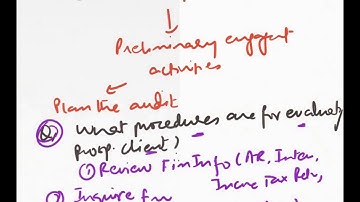 Preliminary engagemt
activities
Plan the audit
Q) What procedures are for evaluatg
prosp. client)
① Review Fin Info (AR, Inter,
Income Tax Retn,
② Inquire